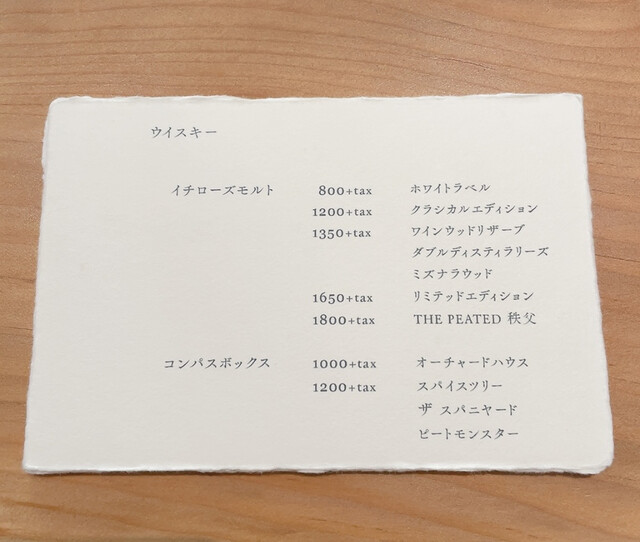 ウイスキー
イチローズモルト 800+tax ホワイトラベル
1200+tax クラシカルエディション
1350+tax ワインウッドリザーブ
ダブルディスティラリーズ
ミズナラウッド
1650+tax リミテッドエディション
1800+tax THE PEATED 秩父
コンパスボックス 1000+tax オーチャードハウス
1200+tax スパイスツリー
ザ スパニヤード
ピートモンスター